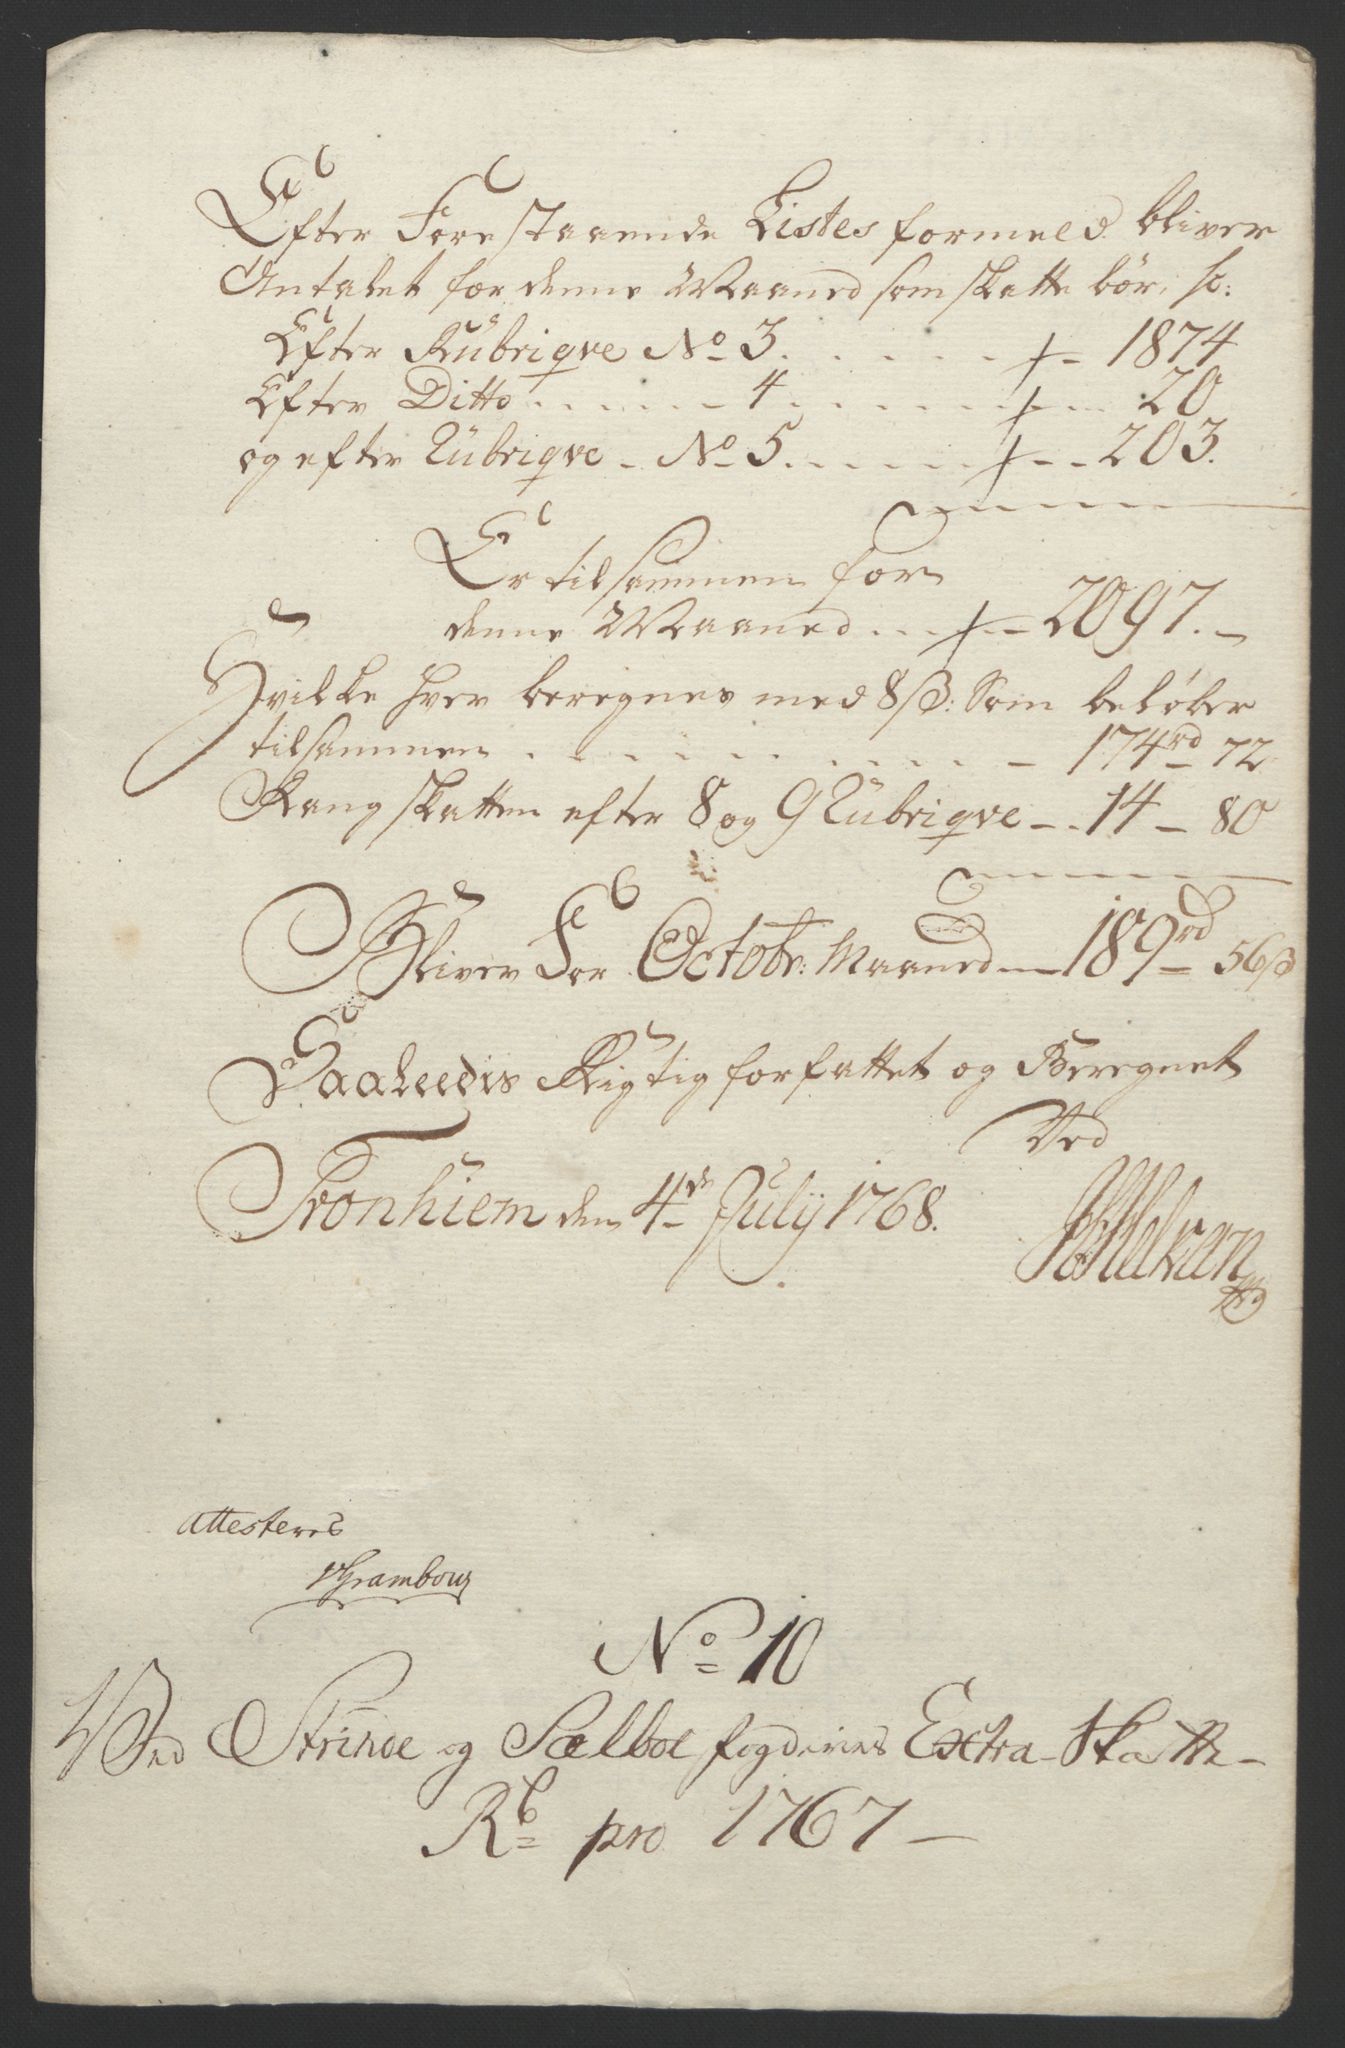 Efter Forestaaende Listes formeld. bliver
Antalet for denne Maaned som skatte bør,
Efter Rübriqve No 3. . . . . . 1874
Efter Ditto . . . . . 4 . . . . . 20
og efter Rübriqve - No 5. . . . . 203.
Er tilsammen for
denne Maaned . . . 2097. -
Hvilke hver beregnes med 8ß: Som beløber
tilsammen . . . . . . . . . 174rd 72
Rang skatten efter 8 og 9 Rübriqve - . 14 - 80
Bliver For Octobr: Maaned - 189rd 56ß
Saaleedis Rigtig forfattet og Beregnet
Ved
Tronhiem den 4de July 1768.
attesteres
No 10
Ved Strinde og Sælboe fogderies Extra-Skatte-
Rb pro 1767 -